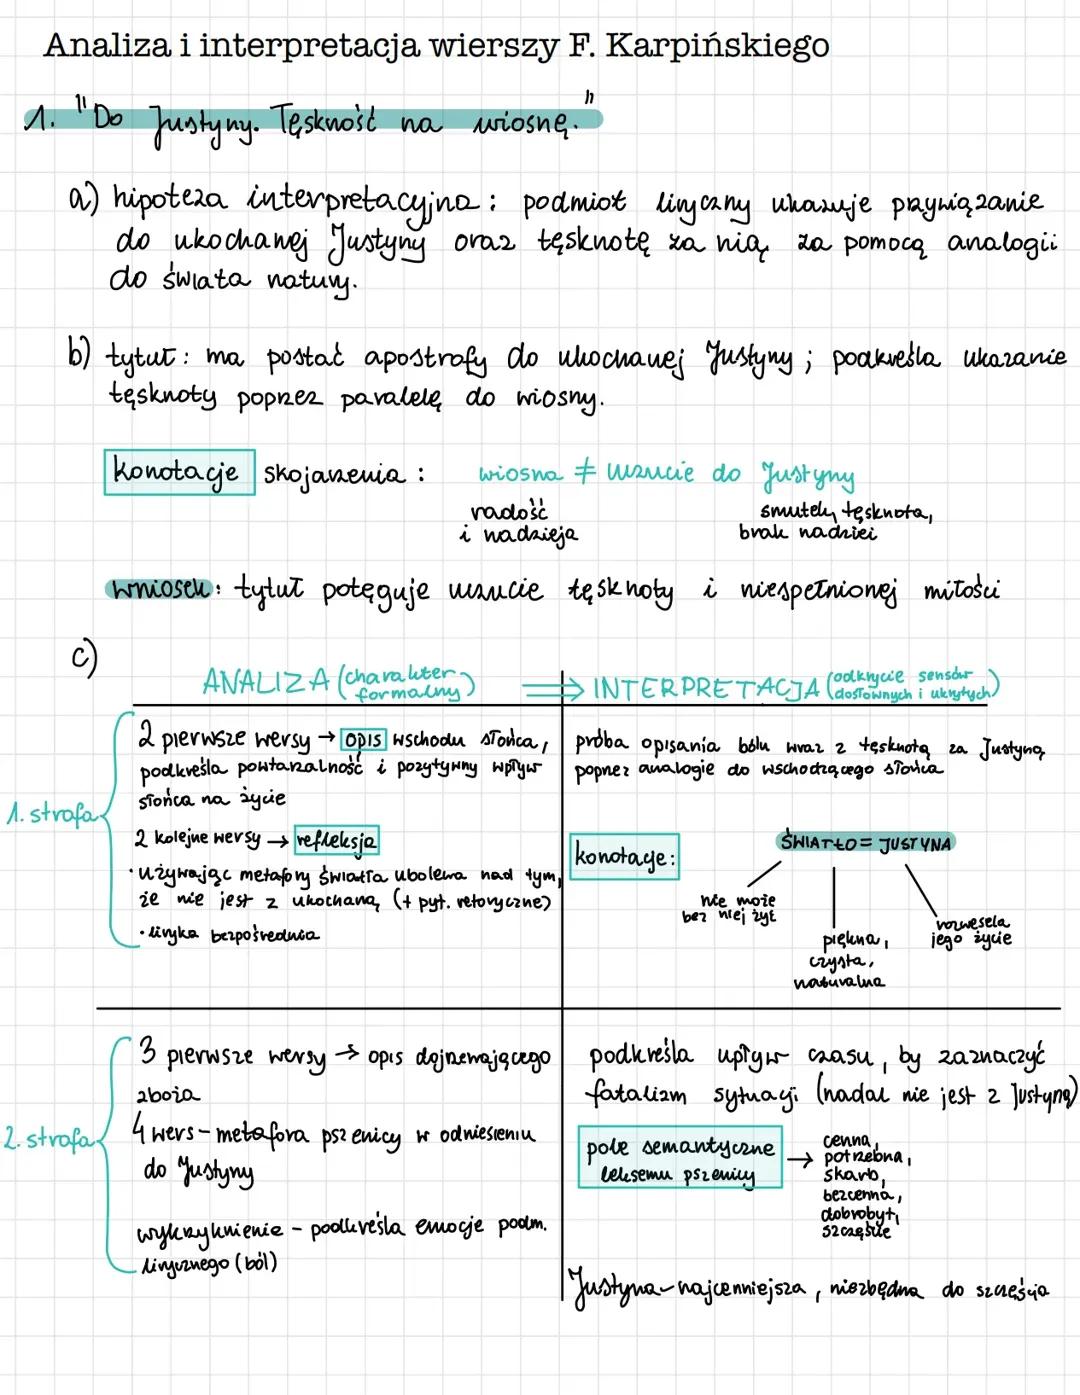 Analiza i interpretacja wierszy F. Karpińskiego
1. "Do Justyny. Tęskność na wiosnę."
a) hipoteza interpretacyjna: podmiot liryczny ukazuje przywiązanie
do ukochanej Justyny oraz tęsknotę za nią za pomocą analogii
do świata natury.
b) tytuł: ma postać apostrofy do ukochanej Justyny; podkreśla ukazanie
tęsknoty poprzez paralelę do wiosny.
konotacje skojarzenia: wiosna ≠ uczucie do Justyny
radość
i nadzieja
smutek, tęsknota,
brak nadziei
wniosek: tytuł potęguje uczucie tęsknoty i niespełnionej miłości
c)
ANALIZA (charakter
formalny)
⇒ INTERPRETACJA (odkrycie sensów
dosłownych i ukrytych)
1. strofa
2 pierwsze wersy → opis wschodu słońca,
podkreśla powtarzalność i pozytywny wpływ
słońca na życie
2 kolejne wersy → refleksja
• używając metafory światła ubolewa nad tym,
że nie jest z ukochaną (+ pyt. retoryczne)
• liryka bezpośrednia
próba opisania bólu wraz z tęsknotą za Justyną
poprzez analogie do wschodzącego słońca
konotacje:
ŚWIATŁO = JUSTYNA
nie może
bez niej żyć
piękna,
czysta,
naturalna
rozwesela
jego życie
2. strofa
3 pierwsze wersy → opis dojrzewającego
zboża
4 wers – metafora pszenicy w odniesieniu
do Justyny
wykrzyknienie – podkreśla emocje podm.
lirycznego (ból)
podkreśla upływ czasu, by zaznaczyć
fatalizm sytuacji (nadal nie jest z Justyną)
pole semantyczne
leksemu pszenicy
→ cenna,
potrzebna,
skarb,
bezcenna,
dobrobyt,
szczęście
Justyna – najcenniejsza, niezbędna do szczęścia